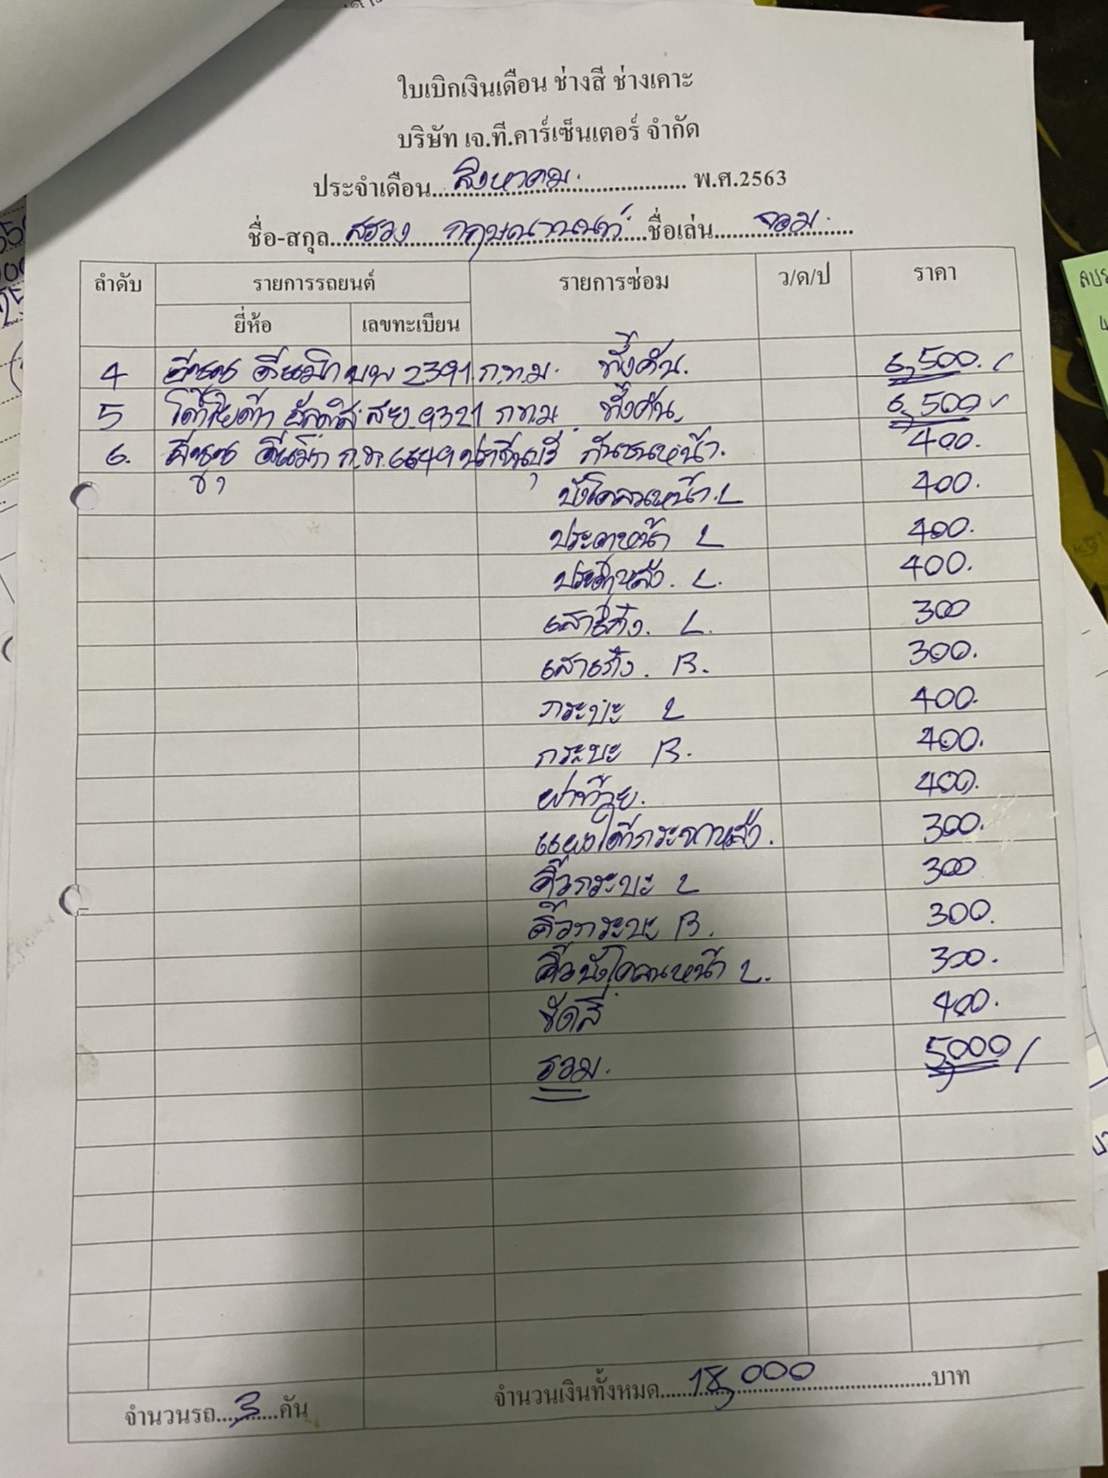 ใบเบิกเงินเดือน ช่างสี ช่างเคาะ
บริษัท เจ.ที.คาร์เซ็นเตอร์ จำกัด
ประจำเดือน สิงหาคม. พ.ศ.2563
ชื่อ-สกุล ชื่อเล่น จอม.
ลำดับ รายการรถยนต์ รายการซ่อม ว/ด/ป ราคา
ยี่ห้อ เลขทะเบียน
4 อีซูซุ ดีแม็ก บพ 2391 ก.ท.ม. ทั้งคัน. 6,500.
5 โตโยต้า อัลติส สย 9321 กทม. ทั้งคัน. 6,500
6. อีซูซุ ดีแม็ก 6649 ปราจีนบุรี กันชนหน้า. 400.
บังโคลนหน้า. L 400.
ประตูหน้า L 400.
ประตูหลัง. L. 400.
เสาเก๋ง. L. 300
เสาเก๋ง. R. 300.
กระบะ L 400.
กระบะ R. 400.
ฝาท้าย. 400.
แผงใต้กระจกหลัง. 300.
คิ้วกระบะ L 300
คิ้วกระบะ R. 300.
คิ้วบังโคลนหน้า L. 300.
ขัดสี 400.
รวม. 5,000
จำนวนรถ 3 คัน จำนวนเงินทั้งหมด 18,000 บาท